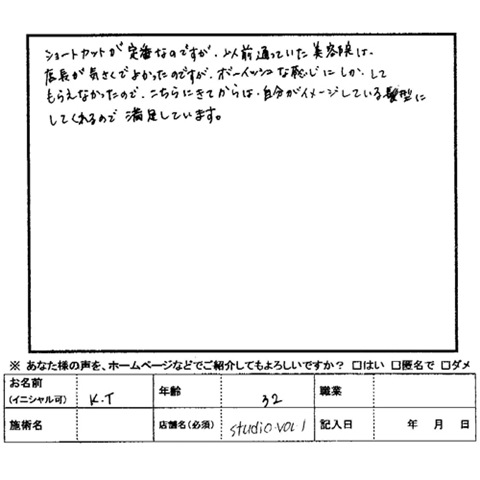 ショートカットが定番なのですが、以前通っていた美容院は、
店長が気さくでよかったのですが、ボーイッシュな感じにしかして
もらえなかったので、こちらにきてからは、自分がイメージしている髪型に
してくれるので満足しています。
※ あなた様の声を、ホームページなどでご紹介してもよろしいですか？ □はい □匿名で □ダメ
お名前 (イニシャル可) K.T 年齢 32 職業
施術名 店舗名(必須) studio VOL 1 記入日 年 月 日